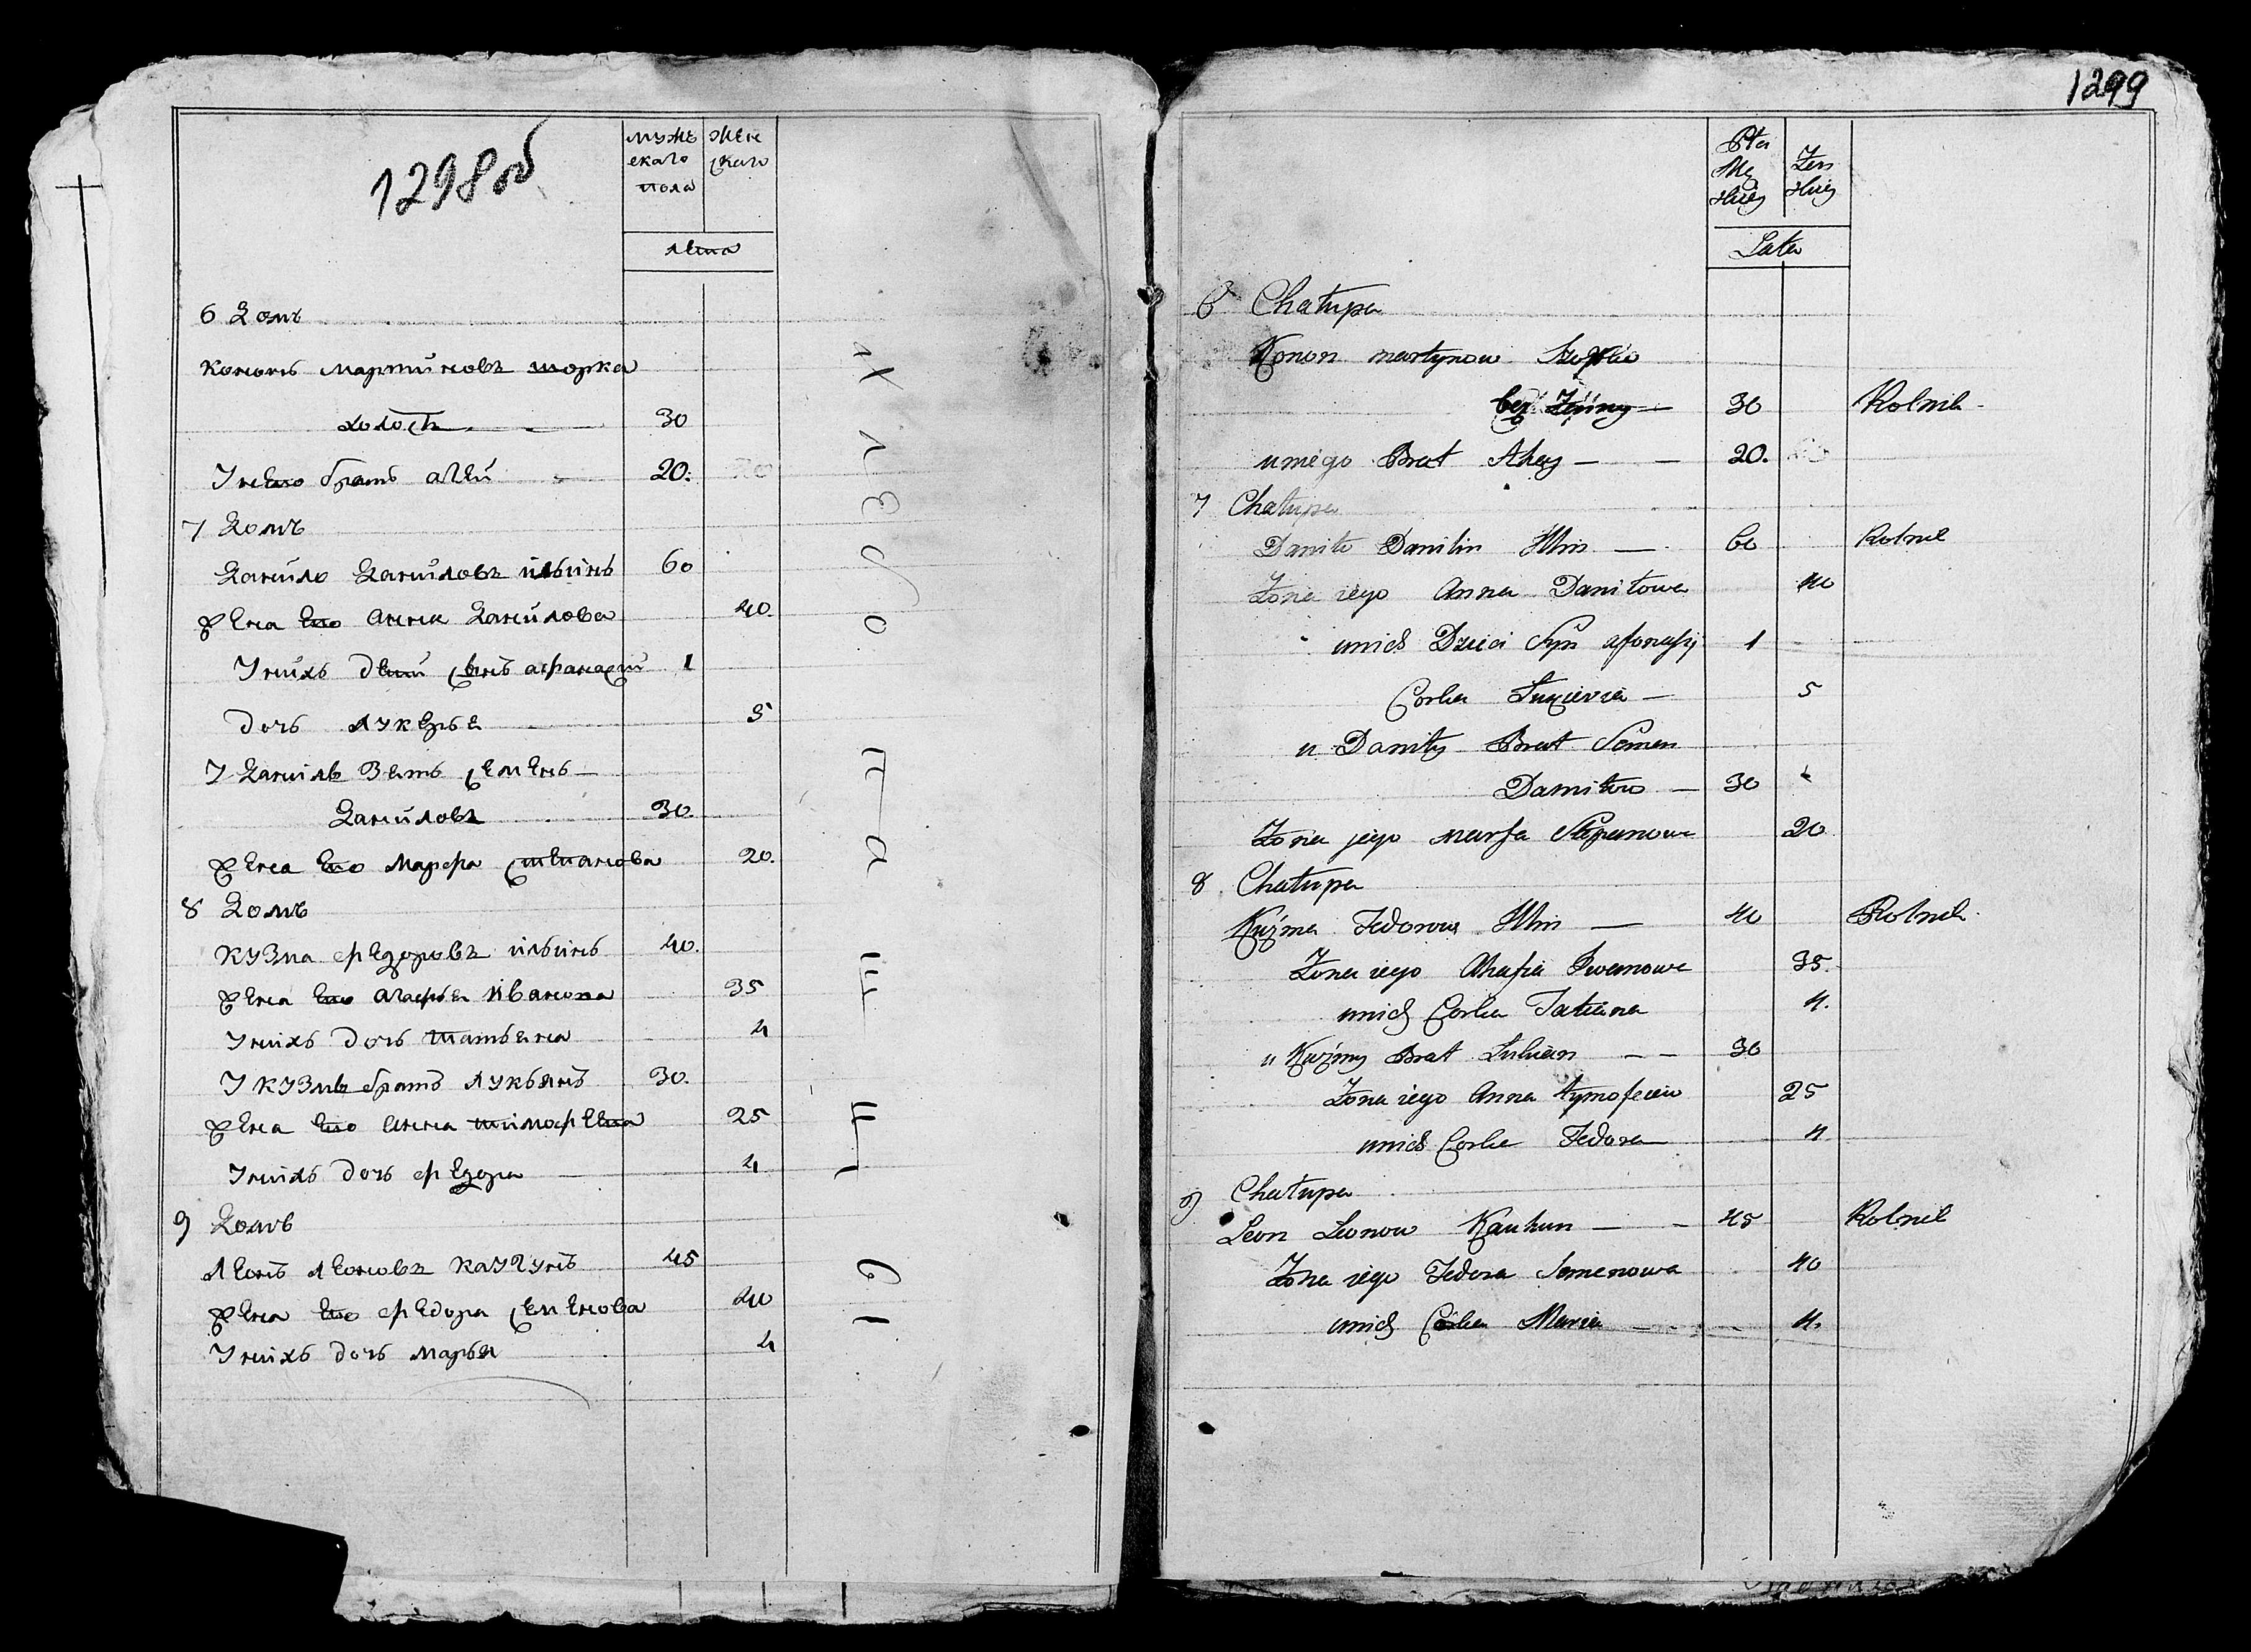 1298об
мужескаго пола
женскаго
лета
6 Домъ
Кононъ Мартиновъ Шорка
холостъ 30
У него братъ Агей 20.
7 Домъ
Данило Даниловъ Ильинъ 60
Жена его Анна Данилова 40.
У нихъ дети сынъ Афанасий 1
дочь Лукерья 5
У Данилы зять Семенъ
Даниловъ 30.
Жена его Марфа Степанова 20.
8 Домъ
Кузма Федоровъ Ильинъ 40.
Жена его Агафья Иванова 35
У нихъ дочь Татьяна 4
У Кузмы братъ Лукьянъ 30.
Жена его Анна Тимофеева 25
У нихъ дочь Федора 4
9 Домъ
Леонъ Леоновъ Каугунъ 45
Жена его Федора Семенова 40
У нихъ дочь Марья 4
Хлѣбопашцы
1299
Płci Mę skiéy
Żeń skiéy
Lata
6 Chałupa
Konon Martynow Szorko
bez Żenny 30 Rolnik
u niégo Brat Ahey 20.
7 Chałupa
Daniło Danilin Illin 60 Rolnik
Żona iego Anna Daniłowa 40
u nich Dzieci Syn Afonasij 1
Corka Lukieria 5
u Daniły Brat Semen
Daniłow 30
Żona jego Marfa Stepanowa 20
8 Chałupa
Kuźma Fedorow Illin 40 Rolnik
Żona iego Ahafia Iwanowa 35.
u nich Corka Tatiana 4.
u Kuźmy Brat Lukian 30
Żona iego Anna Tymofeiew 25
u nich Corka Fedora 4
9 Chałupa
Leon Leonow Kauhun 45 Rolnik
Żona iego Fedora Semenowa 40
u nich Corka Maria 4.